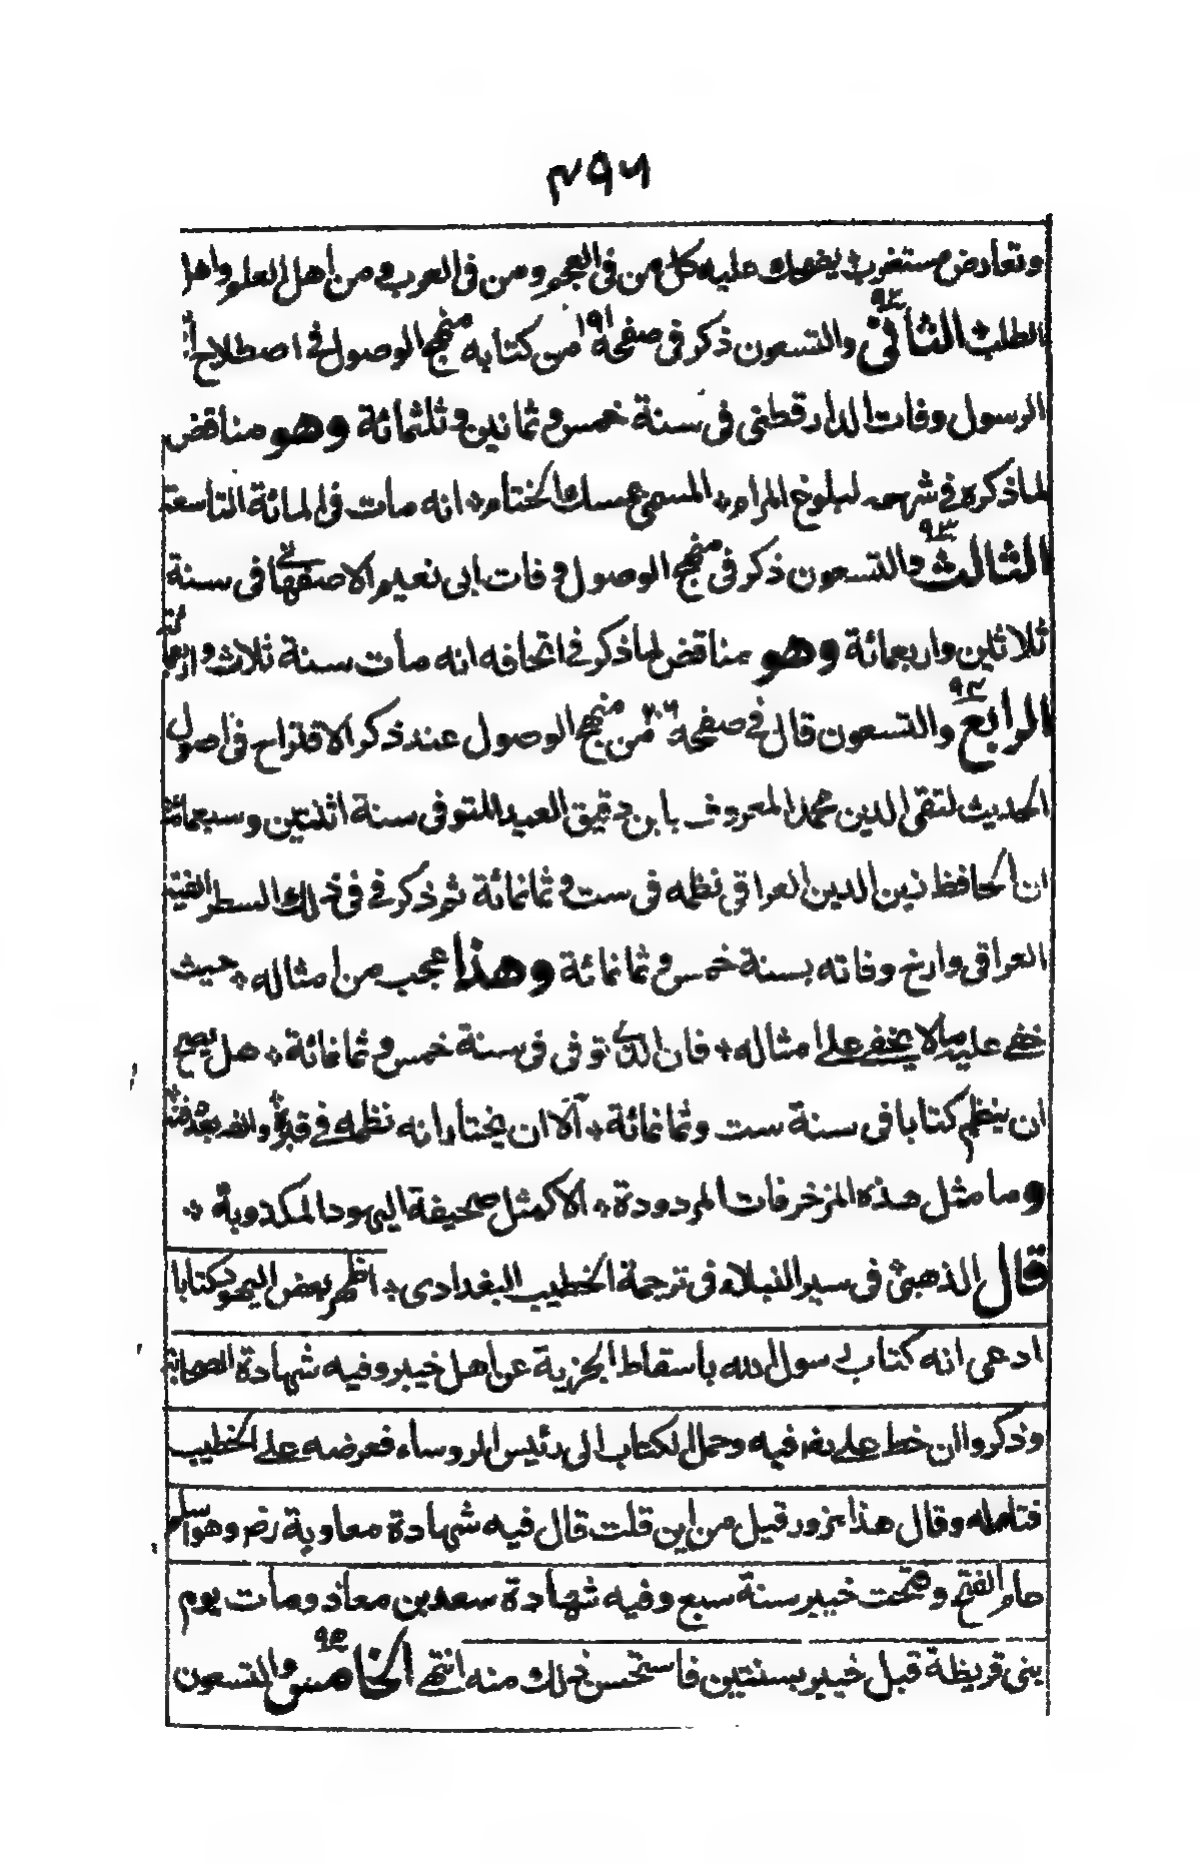 ٤٩٦
وتعارض مستغرب يضحك عليه كل من فى العجم ومن فى العرب ومن اهل العلم واهل
الطلب الثانى ٩٢ والتسعون ذكر فى صفحة ١٩١ من كتابه منهج الوصول فى اصطلاح
الرسول وفات الدارقطنى فى سنة خمس و ثمانين و ثلثمائة وهو مناقض
لماذكره فى شرحه لبلوغ المرام * المسمى بمسك الختام * انه مات فى المائة التاسعة
الثالث ٩٣ والتسعون ذكر فى منهج الوصول وفات ابى نعيم الاصفهانى فى سنة
ثلاثين واربعمائة وهو مناقض لماذكر فى اتحافه انه مات سنة ثلاث واربعمائة
الرابع ٩٤ والتسعون قال فى صفحة من منهج الوصول عند ذكر الاقتراح فى اصول
الحديث لتقى الدين محمد المعروف بابن دقيق العيد المتوفى سنة اثنتين وسبعمائة
ان الحافظ زين الدين العراقى نظمه فى ست و ثمانمائة ثم ذكر فى فى ذلك السطر الفية
العراقى وارخ وفاته بسنة خمس و ثمانمائة وهذا عجب من امثاله * حيث
خفى عليه مالا يخفى على امثاله * فان الذى توفى فى سنة خمس و ثمانمائة * هل يصح
ان ينظم كتابا فى سنة ست وثمانمائة * الا ان يختار انه نظمه فى قبره
وما مثل هذه المزخرفات المردودة * الا كمثل صحيفة اليهود المكذوبة *
قال الذهبى فى سير النبلاء فى ترجمة الخطيب البغدادى * اظهر بعض اليهود كتابا
ادعى انه كتاب رسول الله باسقاط الجزية عن اهل خيبر وفيه شهادة الصحابة
وذكروا ان خط على رضه فيه وحمل الكتاب الى رئيس الروساء فعرضه على الخطيب
فتامله وقال هذا مزور قيل من اين قلت قال فيه شهادة معاوية رضه وهو اسلم
عام الفتح و فتحت خيبر سنة سبع وفيه شهادة سعد بن معاذ ومات يوم
بنى قريظة قبل خيبر بسنتين فاستحسن ذلك منه انتهى الخامس ٩٥ والتسعون